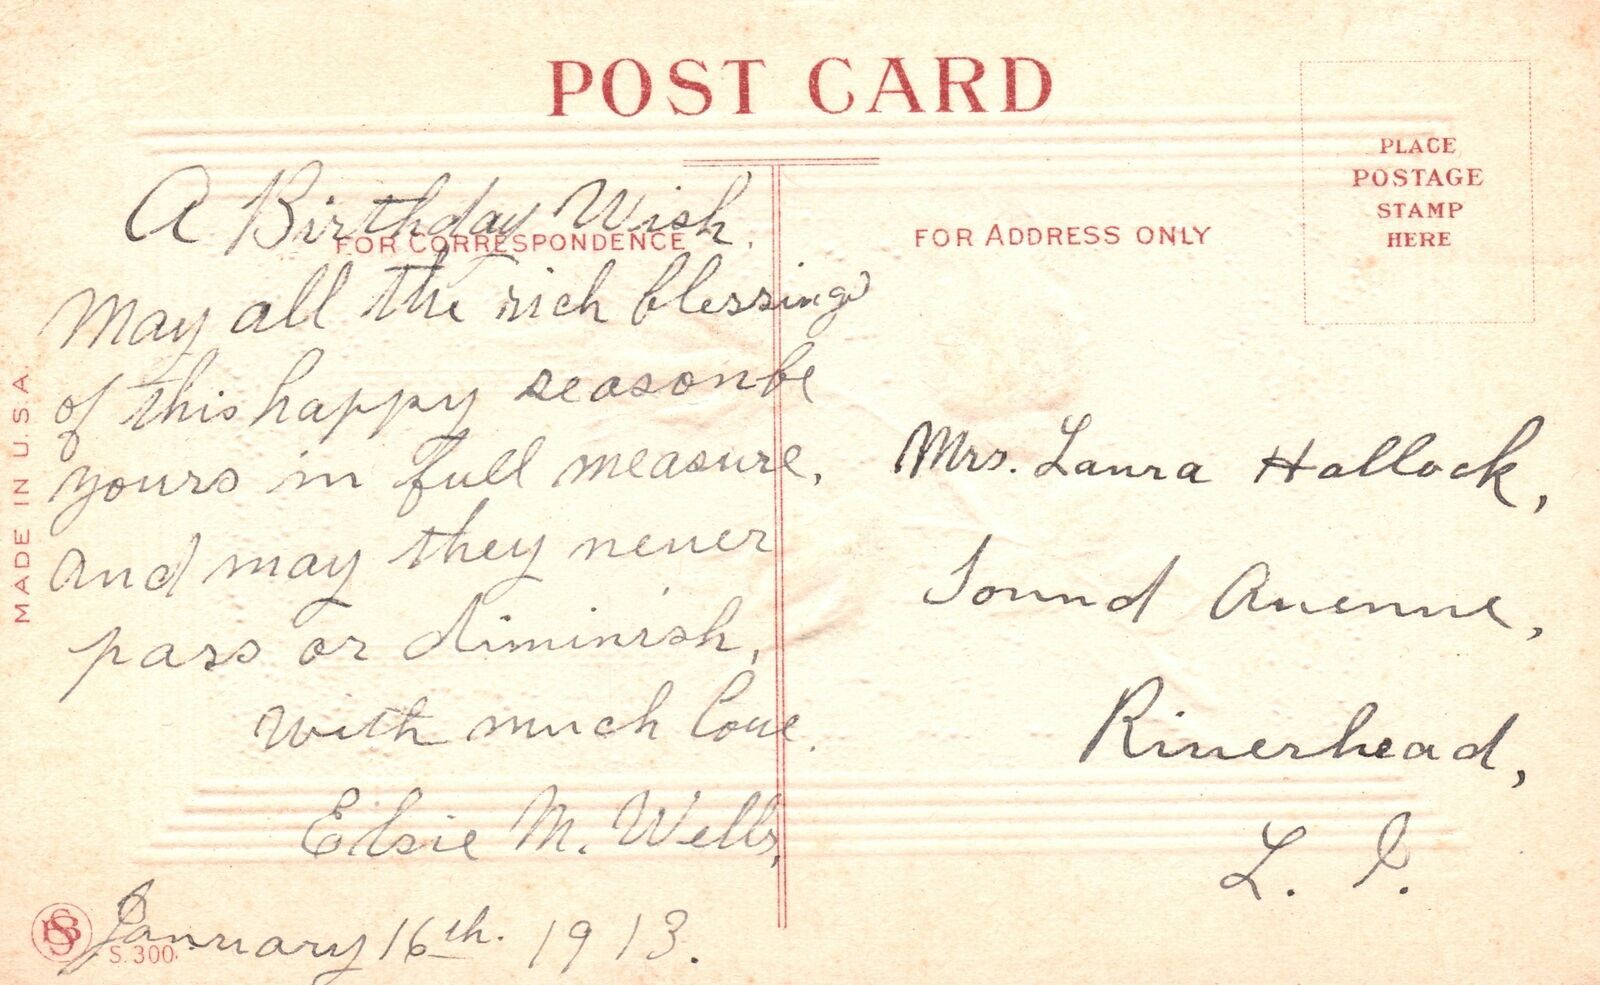 POST CARD
PLACE
POSTAGE
STAMP
HERE
FOR CORRESPONDENCE
FOR ADDRESS ONLY
MADE IN U.S.A.
A Birthday Wish.
May all the rich blessings
of this happy season be
yours in full measure,
and may they never
pass or diminish,
with much love.
Elsie M. Wells,
January 16th. 1913.
S. 300
Mrs. Laura Hallock,
Sound Avenue,
Riverhead,
L. I.